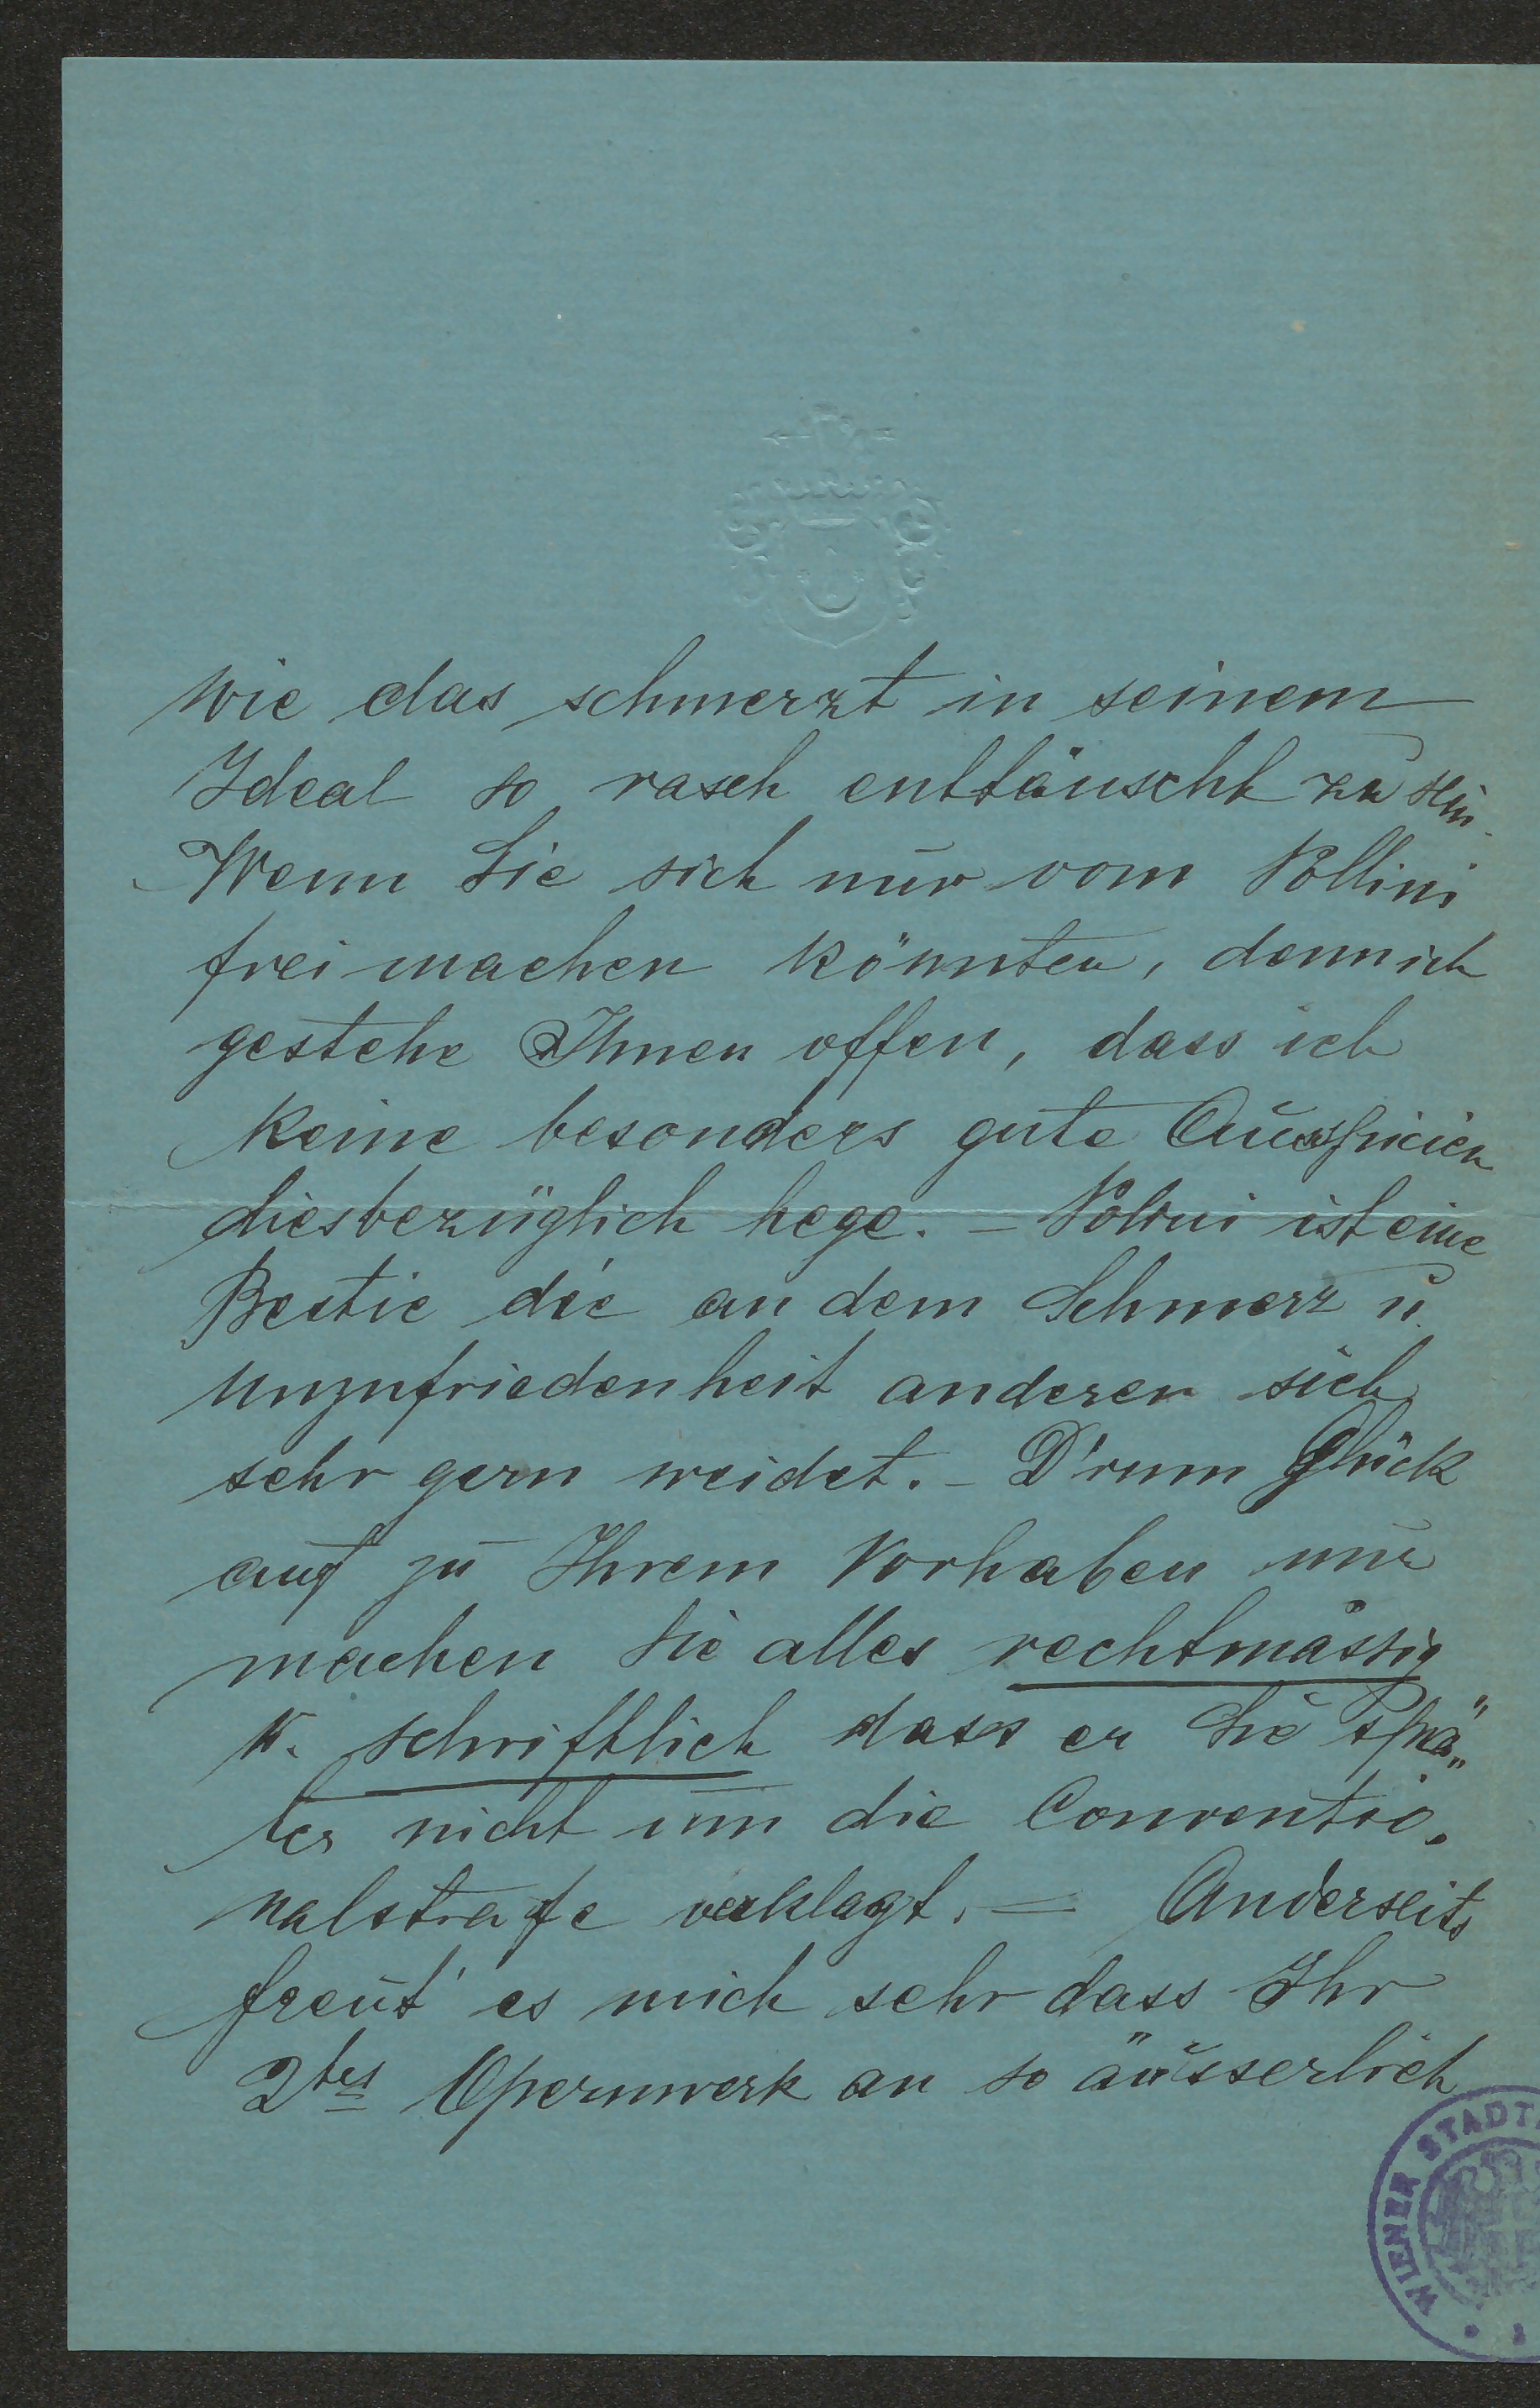 wie das schmerzt in seinem
Ideal so rasch enttäuscht zu sein.
Wenn Sie sich nur vom Pollini
frei machen könnten, denn ich
gestehe Ihnen offen, dass ich
keine besonders gute Auspicien
diesbezüglich hege. – Pollini ist eine
Bestie die an dem Schmerz u.
Unzufriedenheit anderer sich
sehr gern weidet. – D'rum Glück
auf zu Ihrem Vorhaben nur
machen Sie alles rechtmässig
u. schriftlich dass er Sie spä„
ter nicht um die Conventio„
nalstrafe verklagt. = Anderseits
freut es mich sehr dass Ihr
2tes Opernwerk an so äusserlich
WIENER STADT